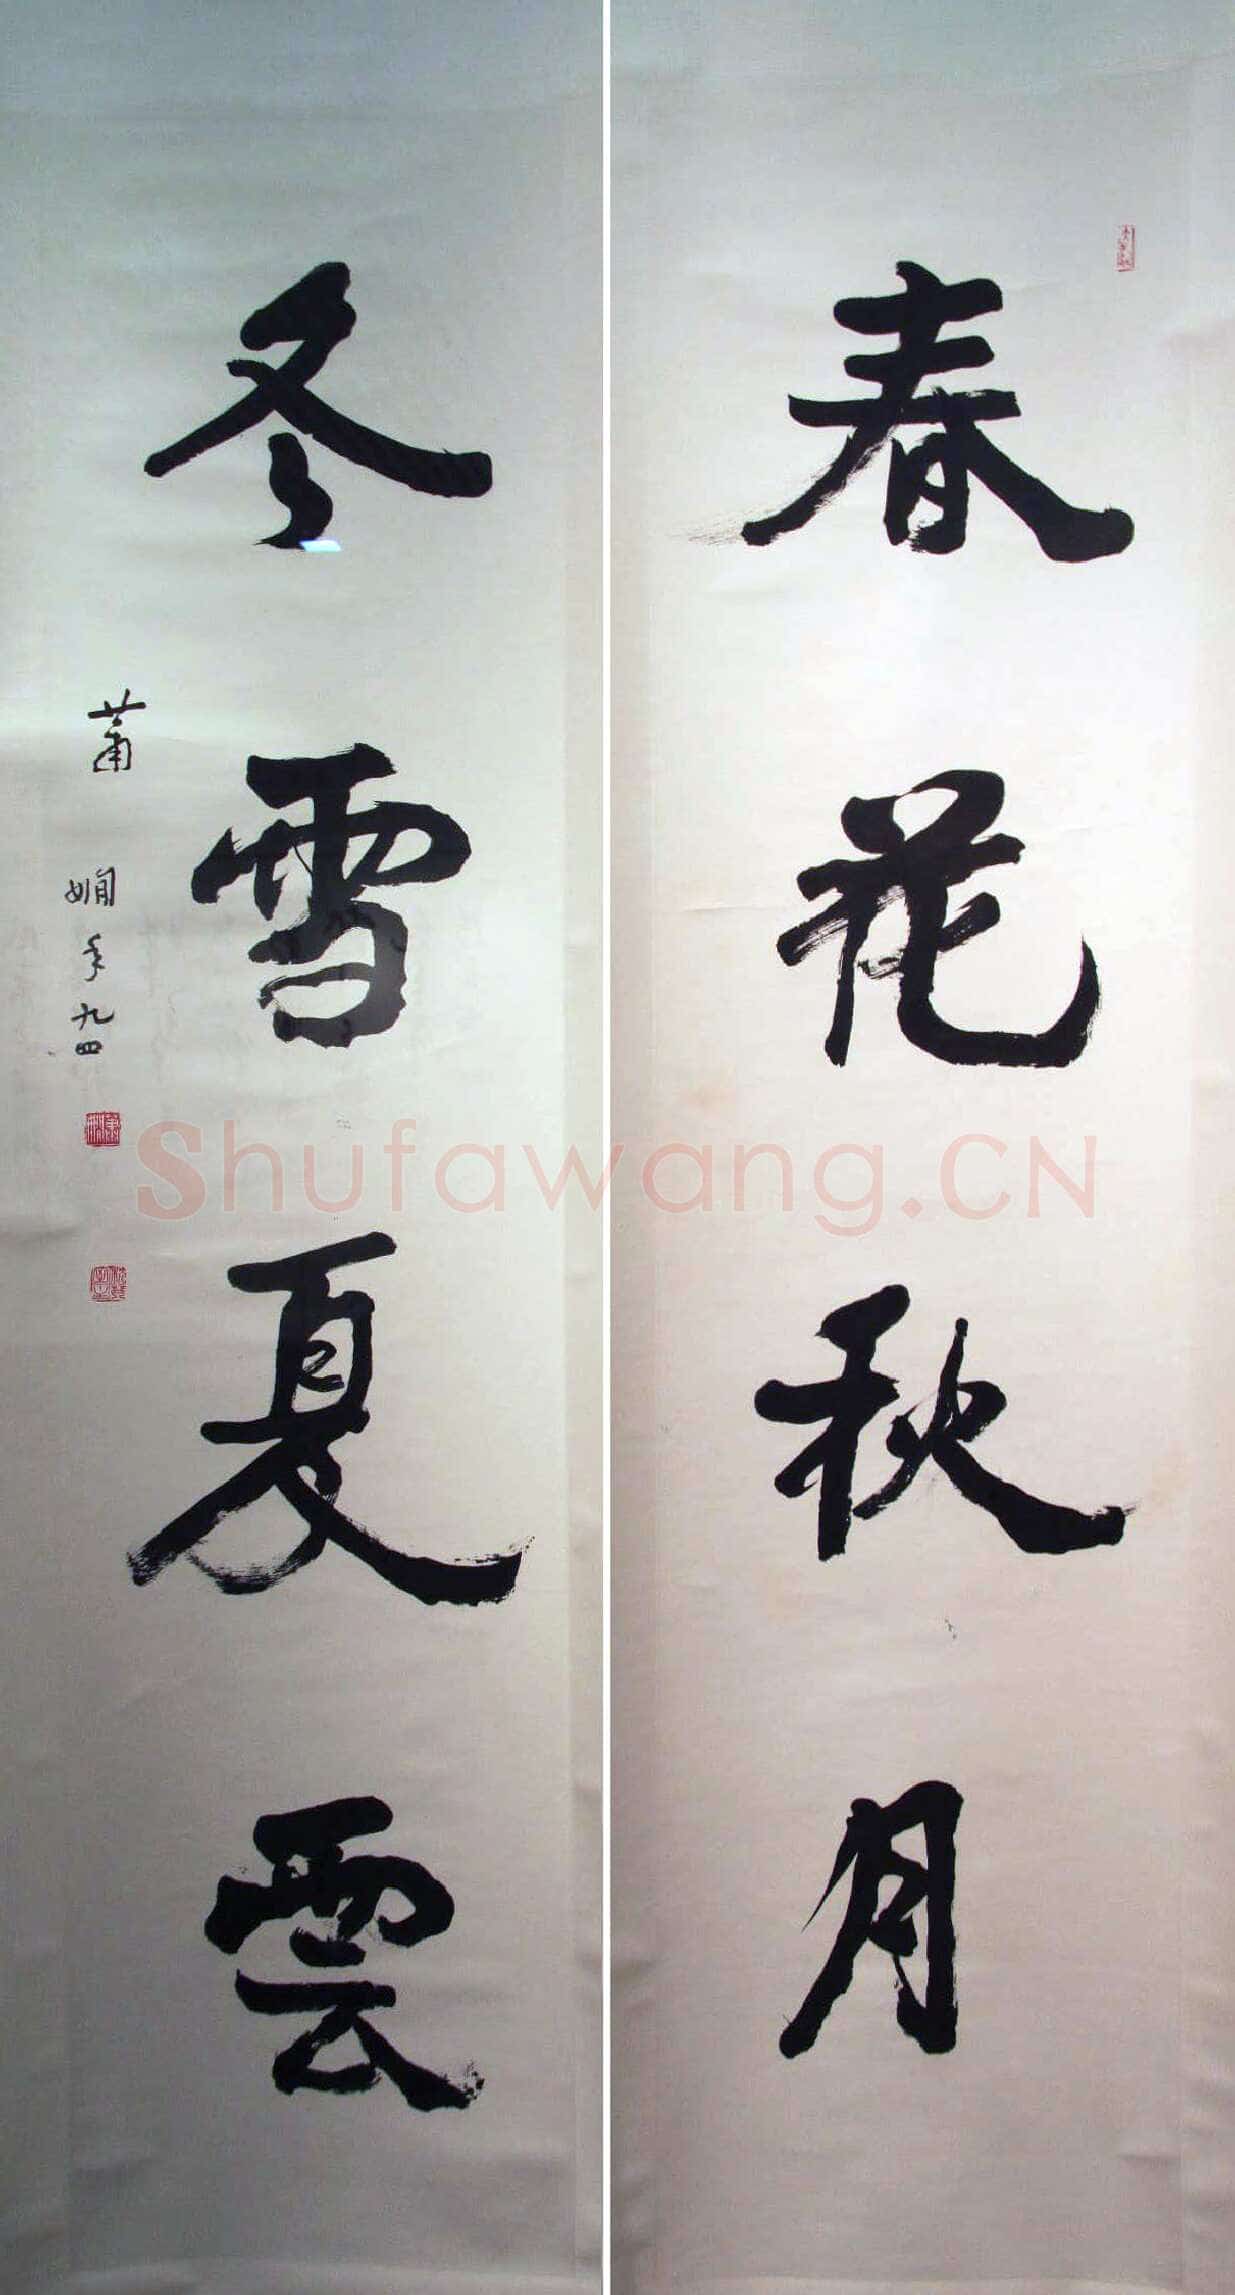 春花秋月
冬雪夏雲
蕭嫻年九四
Shufawang.CN